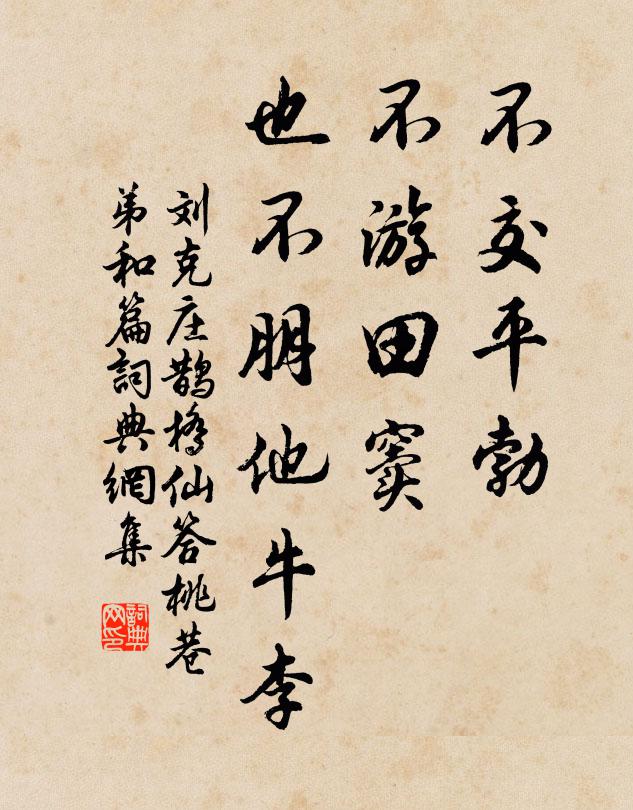 不交平勃
不游田窦
也不朋他牛李
刘克庄鹊桥仙答桃巷
弟和篇詞典網集
詞典
网印